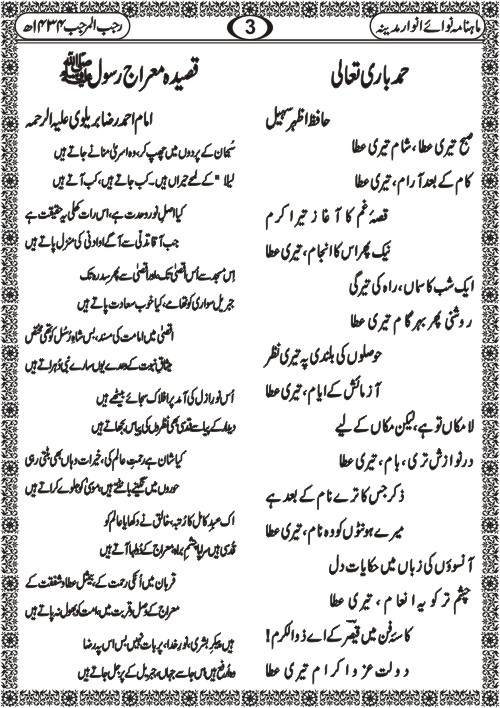 ماہنامہ نوائے انوار مدینہ
3
رجب المرجب ۱۴۳۴ھ
حمد باری تعالیٰ
حافظ اظہر سہیل
صبح تیری عطا، شام تیری عطا
کام کے بعد آرام، تیری عطا
قصۂ غم کا آغاز تیرا کرم
نیک پھر اس کا انجام، تیری عطا
ایک شب کا سماں، راہ کی تیرگی
روشنی پھر بہر گام تیری عطا
حوصلوں کی بلندی پہ تیری نظر
آزمائش کے ایام، تیری عطا
لامکاں تو ہے، لیکن مکاں کے لیے
در نوازش تری، بام، تیری عطا
ذکر جس کا ترے نام کے بعد ہے
میرے ہونٹوں کو وہ نام، تیری عطا
آنسوؤں کی زباں میں حکایات دل
چشم تر کو یہ انعام، تیری عطا
کاسۂ فن میں قیصر کے اے ذوالکرم!
دولت عز و اکرام تیری عطا
قصیدہ معراج رسول ﷺ
امام احمد رضا بریلوی علیہ الرحمہ
سُبحان کے پردوں میں چھپ کر، وہ اسریٰ منانے جاتے ہیں
لیلا" کے لمحے حیراں ہیں۔ کب جاتے ہیں، کب آتے ہیں
کیا اصلِ نورِ وحدت ہے، اس رات کھلی یہ حقیقت ہے
جب آقا تدلّٰی سے آگے او ادنیٰ کی منزل پاتے ہیں
اِس مسجد سے اُس اقصیٰ تک، اور اقصیٰ سے پھر سدرہ تک
جبریل سواری کو تھامے، کیا خوب سعادت پاتے ہیں
اقصیٰ میں امامت کی مسند، بس شاہِ رسل کو تھی مختص
میثاقِ نبوت کے وعدے یوں سارے نبی دُہراتے ہیں
اُس نورِ ازل کی آمد پر افلاک سجائے بیٹھے ہیں
دیدار کے پیاسے قدسی بھی نظروں کی پیاس بجھاتے ہیں
کیا شان ہے رحمتِ عالم کی، خیرات وہاں بھی بٹتی رہی
حوروں میں نگینے بانٹتے ہیں، موسیٰ کو جلوے کراتے ہیں
اک عبدِ کامل کا رُتبہ، خالق نے دکھایا عالم کو
قدسی ہیں سراپا چشم براہ، معراج کے دُولہا آتے ہیں
قربان میں اُنکی رحمت کے، بیمثل عطا و شفقت کے
معراج کے وصل و قربت میں، امت کو بھول نہ پاتے ہیں
ہیں پیکرِ بشری، نورِ خدا، پر بات نہیں، بس اس پہ رضا
وہ ارفع ہیں اس جا سے جہاں، جبریل کے پر جل جاتے ہیں